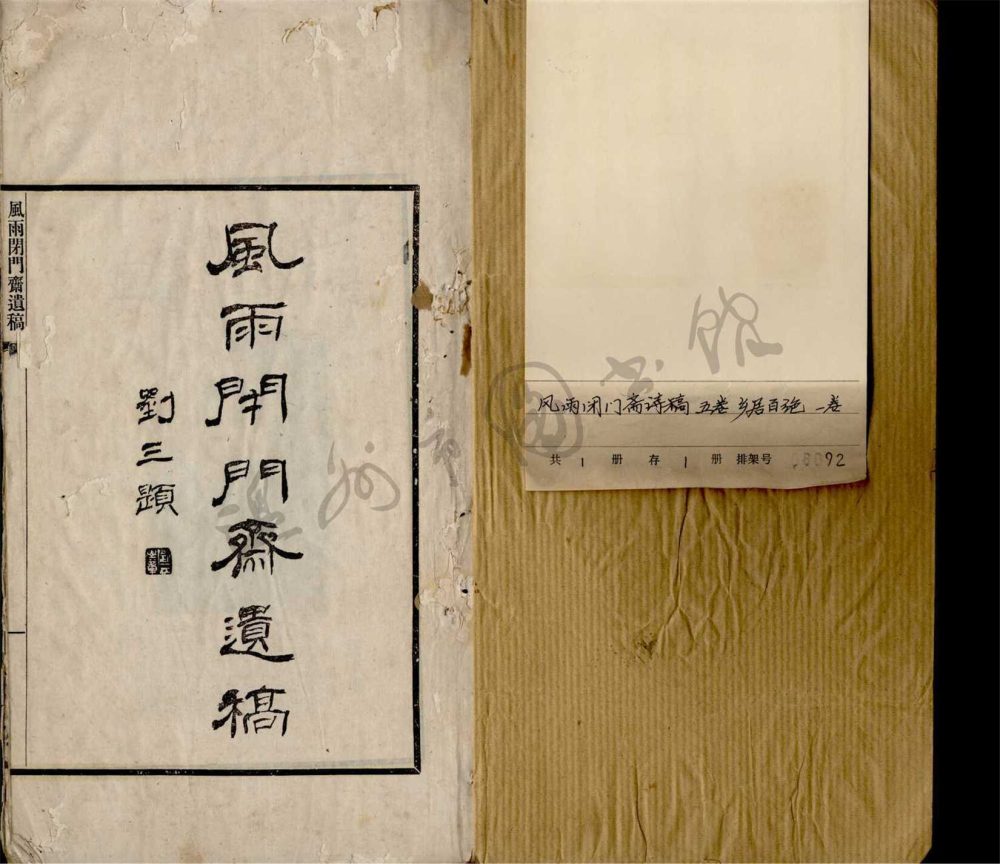 風雨閉門齋遺稿
劉三題
風雨閉門齋遺稿
风雨闭门斋诗稿 五卷 乡居百绝 一卷
共 1 册 存 1 册 排架号 92